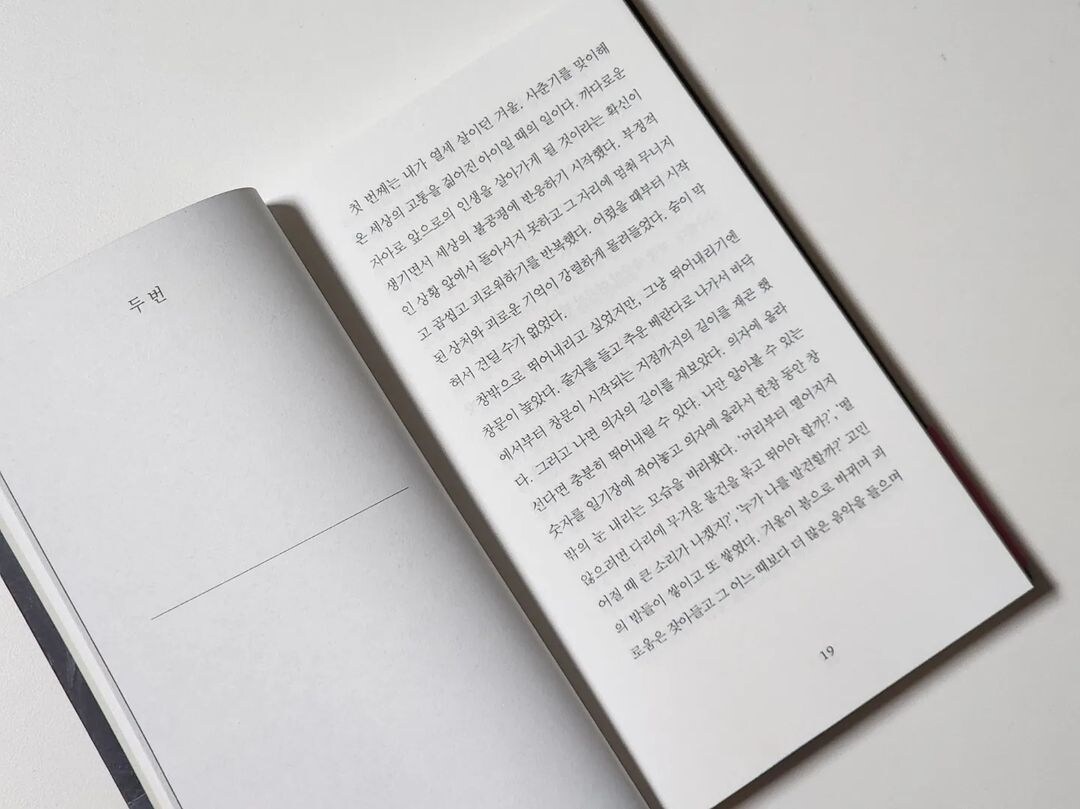 두 번
첫 번째는 내가 열세 살이던 겨울. 사춘기를 맞이해
온 세상의 고통을 짊어진 아이일 때의 일이다. 까다로운
자아로 앞으로의 인생을 살아가게 될 것이라는 확신이
생기면서 세상의 불공평에 반응하기 시작했다. 부정적
인 상황 앞에서 돌아서지 못하고 그 자리에 멈춰 무너지
고 곱씹고 괴로워하기를 반복했다. 어렸을 때부터 시작
된 상처와 괴로운 기억이 강렬하게 몰려들었다. 숨이 막
혀서 견딜 수가 없었다.
창밖으로 뛰어내리고 싶었지만, 그냥 뛰어내리기엔
창문이 높았다. 줄자를 들고 추운 베란다로 나가서 바닥
에서부터 창문이 시작되는 지점까지의 길이를 재곤 했
다. 그러고 나면 의자의 길이를 재보았다. 의자에 올라
선다면 충분히 뛰어내릴 수 있다. 나만 알아볼 수 있는
숫자를 일기장에 적어놓고 의자에 올라서 한참 동안 창
밖의 눈 내리는 모습을 바라봤다. '머리부터 떨어지지
않으려면 다리에 무거운 물건을 묶고 뛰어야 할까?', '떨
어질 때 큰 소리가 나겠지?', '누가 나를 발견할까?' 고민
의 밤들이 쌓이고 또 쌓였다. 겨울이 봄으로 바뀌며 괴
로움은 잦아들고 그 어느 때보다 더 많은 음악을 들으며
19